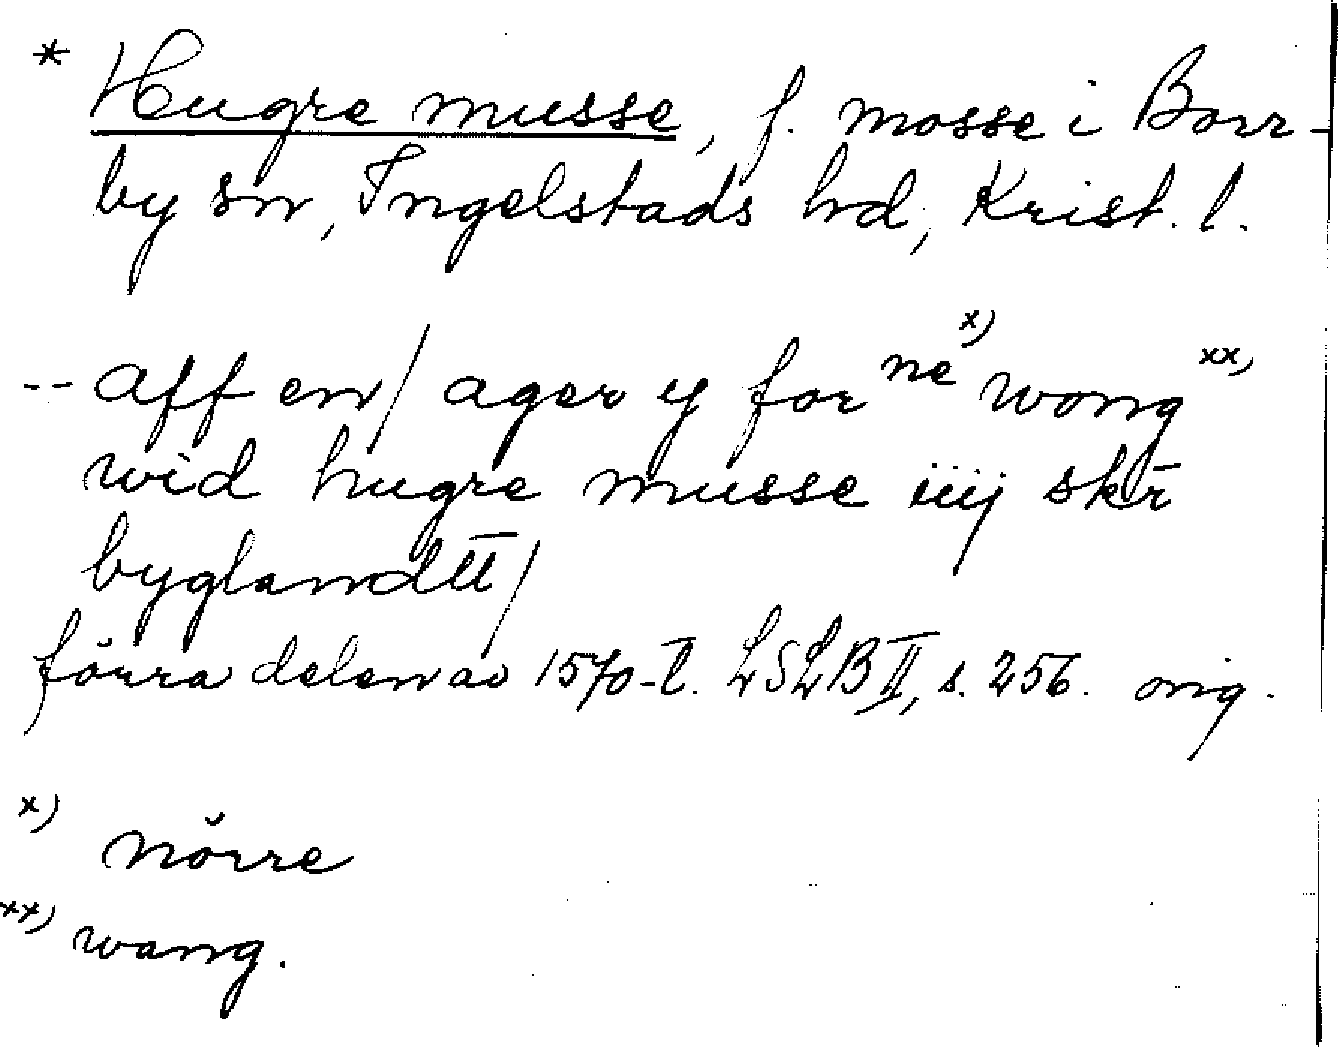 * Hugre musse, f. mosse i Borr-
by sn, Ingelstads hd, Krist. l.
-- aff en/ ager y for ne x) wong xx)
wid hugre musse iiij skr̄
byglandt̄t̄/
förra delen av 1570-t. LSLB II, s. 256. orig.
x) nörre
xx) wang.